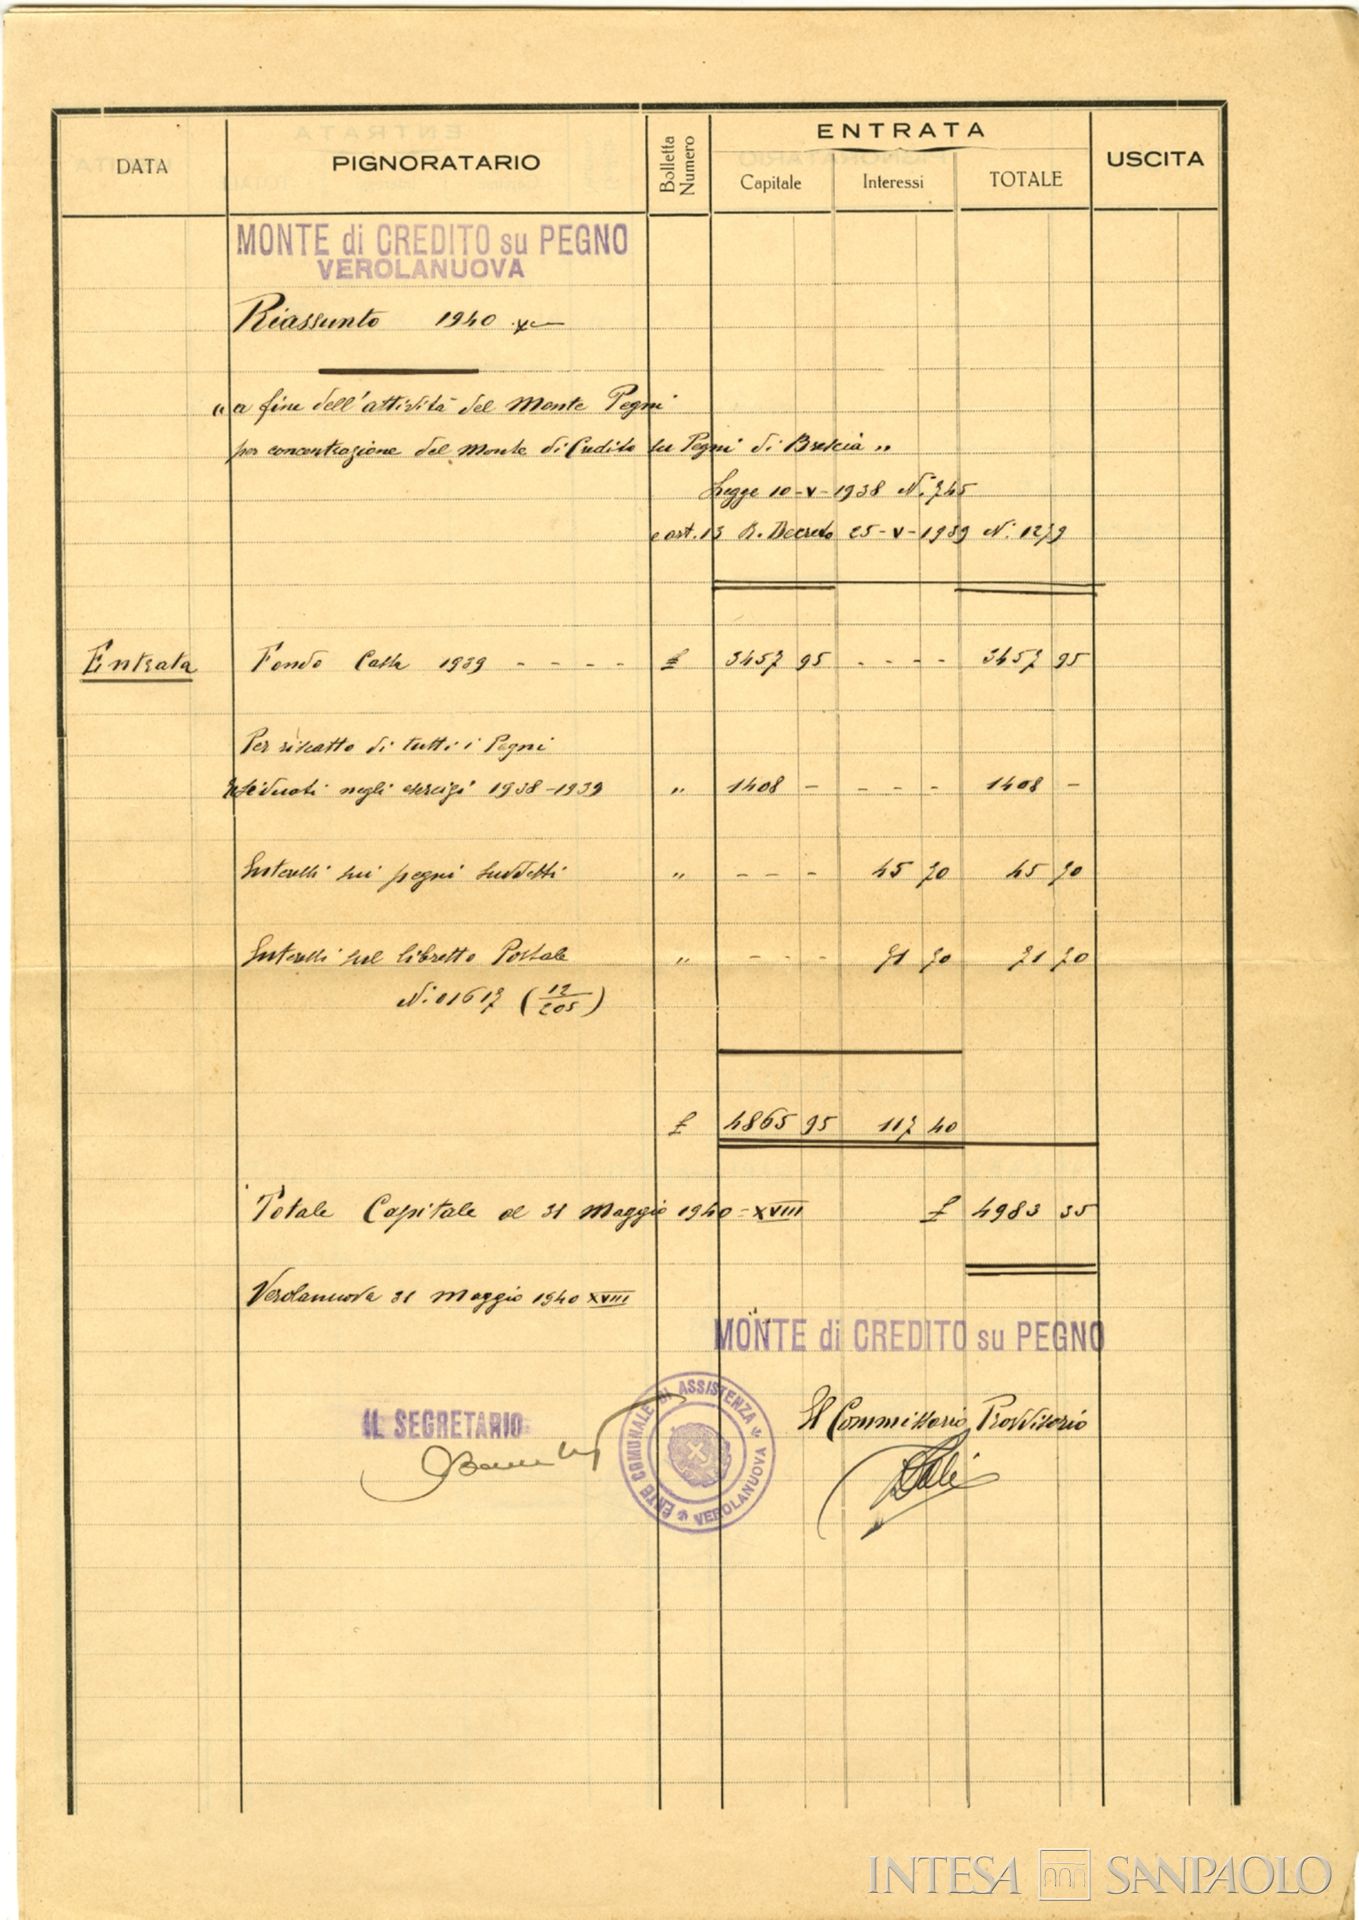 DATA
PIGNORATARIO
Bolletta Numero
ENTRATA
Capitale
Interessi
TOTALE
USCITA
MONTE di CREDITO su PEGNO
VEROLANUOVA
Riassunto 1940
"a fine dell'attività del Monte Pegni
per concentrazione del Monte di Credito su Pegni di Brescia"
Legge 10-V-1938 N. 745
e art. 13 R. Decreto 25-V-1939 N. 1279
Entrata Fondo Cassa 1939 - - - - £ 3457 95 - - - - 3457 95
Per riscatto di tutti i Pegni
residuati negli esercizi 1938-1939 " 1408 - - - - 1408 -
Interessi sui pegni suddetti " - - - 45 70 45 70
Interessi sul libretto Postale " - - - 71 70 71 70
N. 01617 (12/205)
£ 4865 95 117 40
Totale Capitale al 31 Maggio 1940 = XVIII £ 4983 35
Verolanuova 31 Maggio 1940 XVIII
MONTE di CREDITO su PEGNO
IL SEGRETARIO
ENTE COMUNALE DI ASSISTENZA
VEROLANUOVA
Il Commissario Provvisorio
INTESA SANPAOLO